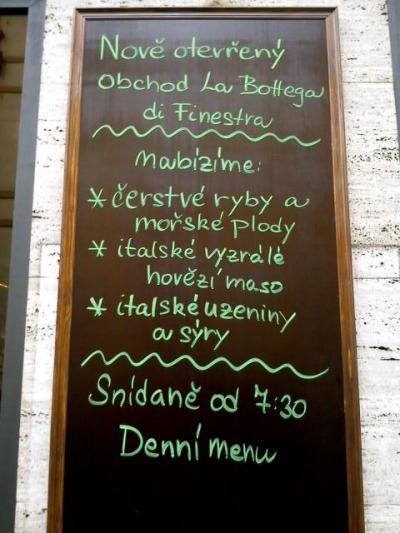 Nově otevřený
obchod La Bottega
di Finestra
nabízíme:
* čerstvé ryby a
mořské plody
* italské vyzrálé
hovězí maso
* italské uzeniny
a sýry
Snídaně od 7:30
Denní menu